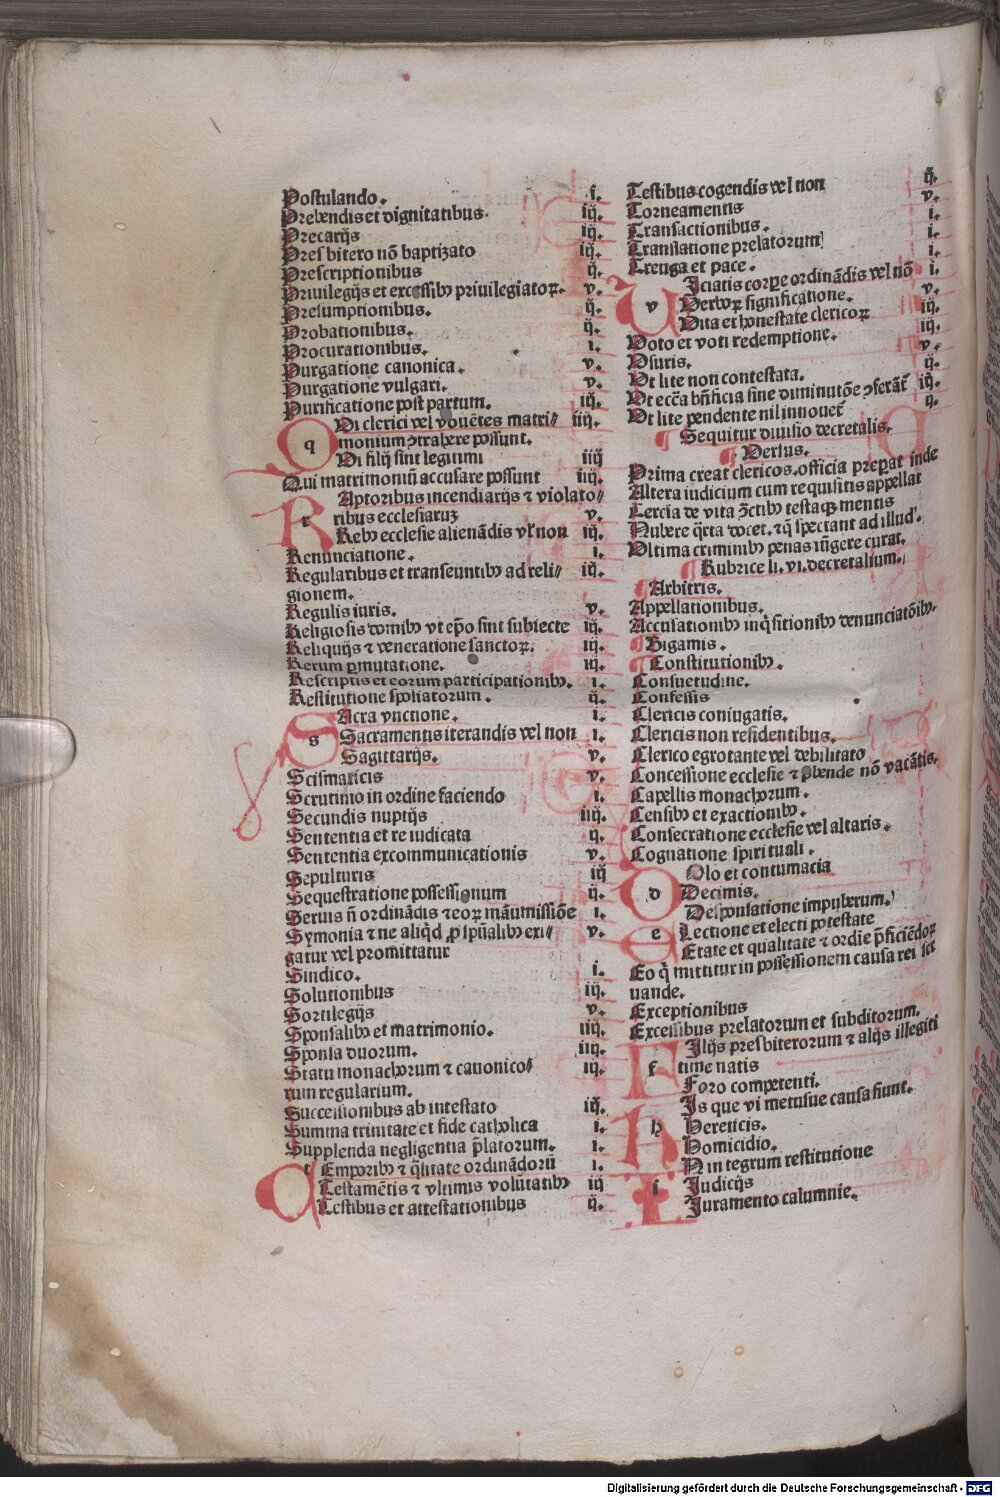 Postulando. i.
Prebendis et dignitatibus. iij.
Precarijs iij.
Presbitero nō baptizato iij.
Prescriptionibus ij.
Priuilegijs et excessibꝰ priuilegiatoꝝ. v.
Presumptionibus. ij.
Probationibus. ij.
Procurationibus. i.
Purgatione canonica. v.
Purgatione vulgari. v.
Purificatione post partum. iij.
q Vi clerici vel vouētes matri⸗ iiij.
monium ꝯtrahere possunt.
Vi filij sint legitimi iiij
Qui matrimoniū accusare possunt iiij.
r Aptoribus incendiarijs ⁊ violato⸗
ribus ecclesiaruꝫ v.
Rebꝰ ecclesie alienādis vl' non iij.
Renunciatione. i.
Regularibus et transeuntibꝰ ad reli⸗ iij.
gionem.
Regulis iuris. v.
Religiosis domibꝰ vt epo sint subiecte iij.
Reliquijs ⁊ veneratione sanctoꝝ. iij.
Rerum ꝑmutatione. iij.
Rescriptis et eorum participationibꝰ. i.
Restitutione spoliatorum. ij.
s Acra vnctione. i.
Sacramentis iterandis vel non i.
Sagittarijs. v.
Scismaticis v.
Scrutinio in ordine faciendo i.
Secundis nuptijs iiij.
Sententia et re iudicata ij.
Sententia excommunicationis v.
Sepulturis iij
Sequestratione possessionum ij.
Seruis ñ ordinādis ⁊ eoꝝ māumissiōe i.
Symonia ⁊ ne aliq̄d ꝓ spūalibꝰ exi⸗ v.
gatur vel promittatur
Sindico. i.
Solutionibus iij.
Sortilegijs v.
Sponsalibꝰ et matrimonio. iiij.
Sponsa duorum. iiij.
Statu monachorum ⁊ canonico⸗ iij.
rum regularium.
Successionibus ab intestato iij.
Summa trinitate et fide catholica i.
Supplenda negligentia p̄latorum. i.
t Emporibꝰ ⁊ q̄litate ordinādorū i.
Testamētis ⁊ vltimis volūtatibꝰ iij
Testibus et attestationibus ij.
Testibus cogendis vel non ij.
Torneamentis v.
Transactionibus. i.
Translatione prelatorum i.
Treuga et pace. i.
v Iciatis corpe ordinādis vel nō i.
Verboꝝ significatione. v.
Vita et honestate clericoꝝ iij.
Voto et voti redemptione. iij.
Vsuris. v.
Vt lite non contestata. ij.
Vt ecca bn̄ficia sine diminutōe ꝯferāt' iij.
Vt lite pendente nil innouet' ij.
¶ Sequitur diuisio decretalis.
¶ Versus.
Prima creat clericos. officia preparat inde
Altera iudicium cum requisitis appellat
Tercia de vita ꝯctibꝰ testaqꝫ mentis
Nubere q̄rta docet. ⁊ q̄ spectant ad illud'.
Vltima criminibꝰ penas iūgere curat.
¶ Rubrice li. vi. decretalium.
¶ Arbitris.
Appellationibus.
Accusationibꝰ inq̄sitionibꝰ denunciatōibꝰ.
¶ Bigamis.
¶ Constitutionibꝰ.
Consuetudine.
Confessis
Clericis coniugatis.
Clericis non residentibus.
Clerico egrotante vel debilitato
Concessione ecclesie ⁊ p̄bende nō vacātis.
Capellis monachorum.
Censibꝰ et exactionibꝰ.
Consecratione ecclesie vel altaris.
Cognatione spirituali.
d Olo et contumacia
Decimis.
Desponsatione impuberum.
e Lectione et electi potestate
Etate et qualitate ⁊ ordie p̄ficiēdoꝝ
Eo q̄ mittitur in possessionem causa rei ser
uande.
Exceptionibus
Excessibus prelatorum et subditorum.
f Ilijs presbiterorum ⁊ alijs illegiti
time natis
Foro competenti.
h Is que vi metusue causa fiunt.
Hereticis.
Homicidio.
i N integrum restitutione
Iudicijs
Iuramento calumnie.
Digitalisierung gefördert durch die Deutsche Forschungsgemeinschaft - DFG